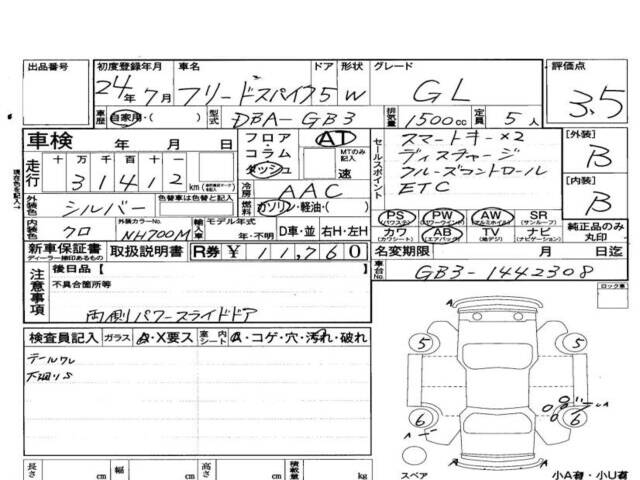 出品番号 初度登録年月 車名 ドア 形状 グレード 評価点
24年7月 フリードスパイク 5 W GL 3.5
車歴 自家用・( ) 型式 DBA-GB3 排気量 1500cc 定員 5人
車検 年 月 日
フロア・コラム ダッシュ AT MTのみ記入 速
セールスポイント
スマートキー×2
ディスチャージ
クルーズコントロール
ETC
[外装] B
[内装] B
走行 十 万 千 百 十 一
31412 km
冷房 AAC
外装色 シルバー 色替車は色替と記入
燃料 ガソリン・軽油・( )
内装色 クロ 外装カラーNo. NH700M
輸入車 モデル年式 年・不明 D車・並 右H・左H
PS (パワステ) PW (パワーウインド) AW (アルミホイル) SR (サンルーフ)
カワ (カワシート) AB (エアバック) TV (地デジ) ナビ (ナビゲーション)
純正品のみ丸印
新車保証書 ディーラー捺印あるもの 取扱説明書 R券 ¥11,760
名変期限 月 日迄
車台No. GB3-1442308
注意事項
後日品【 】
不具合箇所等
両側パワースライドドア
ロック車
検査員記入 ガラス A・X要ス 室内シート A・コゲ・穴・汚れ・破れ
テールワレ
下廻りS
5 5
6 6
A A
スペア 小A有・小U有
長さ cm 幅 cm 高さ cm 積載量 kg